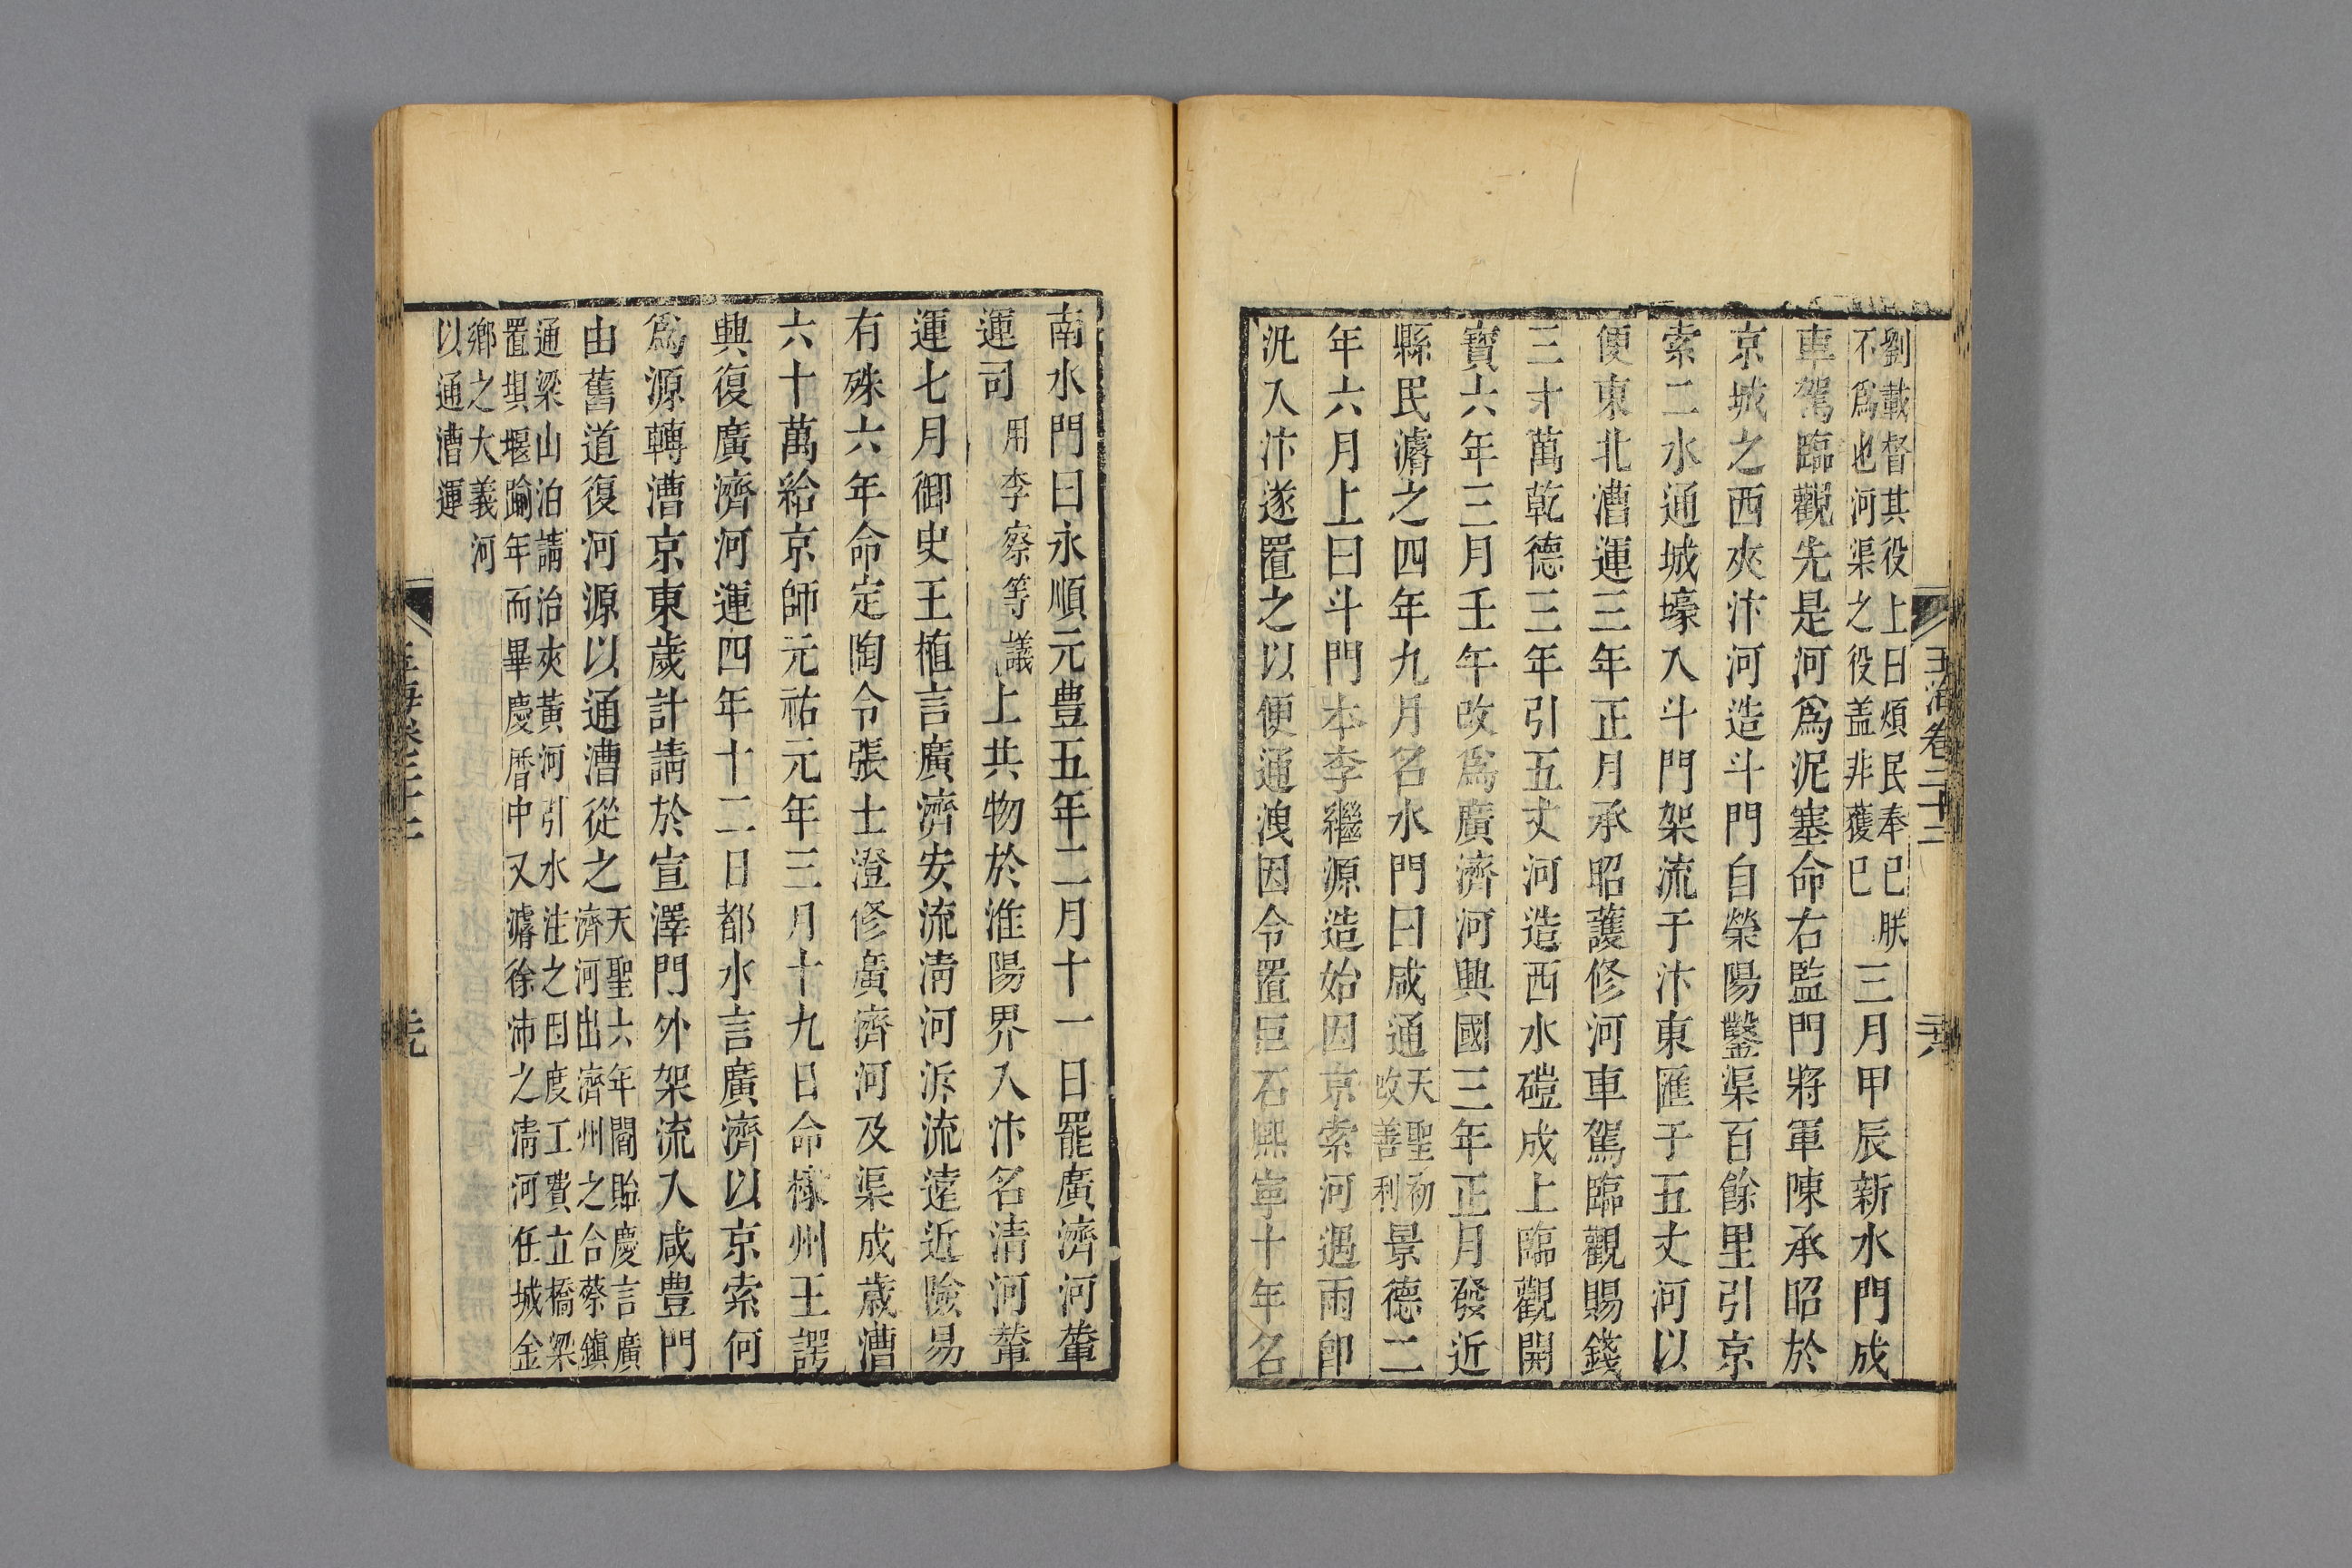 劉載督其役上曰煩民奉己朕
不爲也河渠之役盖非獲已
三月甲辰新水門成
車駕臨觀先是河爲泥塞命右監門將軍陳承昭於
京城之西夾汴河造斗門自滎陽鑿渠百餘里引京
索二水通城壕入斗門架流于汴東匯于五丈河以
便東北漕運三年正月承昭護修河車駕臨觀賜錢
三十萬乾德三年引五丈河造西水磑成上臨觀開
寶六年三月壬午改爲廣濟河興國三年正月發近
縣民濬之四年九月名水門曰咸通
天聖初
改善利
景德二
年六月上曰斗門本李繼源造始因京索河遇雨卽
汎入汴遂置之以便通洩因令置巨石熙寧十年名
玉海卷二十二
二十八
南水門曰永順元豊五年二月十一日罷廣濟河輦
運司
用李察等議
上共物於淮陽界入汴名清河輦
運七月御史王植言廣濟安流淸河泝流遠近險易
有殊六年命定陶令張士澄修廣濟河及渠成歲漕
六十萬給京師元祐元年三月十九日命棣州王諤
興復廣濟河運四年十二日都水言廣濟以京索河
爲源轉漕京東歲計請於宣澤門外架流入咸豊門
由舊道復河源以通漕從之
天聖六年閻貽慶言廣
濟河出濟州之合蔡鎭
通梁山泊請治夾黃河引水注之因度工費立橋梁
置埧堰踰年而畢慶曆中又濬徐沛之淸河任城金
鄉之大義河
以通漕運
玉海卷二十二